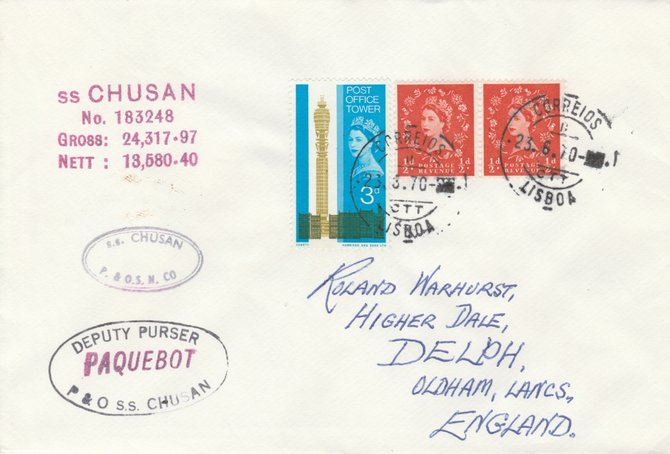 ss CHUSAN
No. 183248
GROSS: 24,317·97
NETT : 13,580·40
POST
OFFICE
TOWER
3d
HARRISON AND SONS LTD
½d POSTAGE REVENUE ½d
½d POSTAGE REVENUE ½d
CORREIOS
23.6.70
CTT
LISBOA
CORREIOS
23.6.70
CTT
LISBOA
s.s. CHUSAN
P. & O.S.N. CO
DEPUTY PURSER
PAQUEBOT
P & O S.S. CHUSAN
ROLAND WARHURST,
HIGHER DALE,
DELPH,
OLDHAM, LANCS.,
ENGLAND.